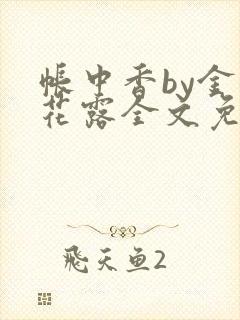 帐中香by金
花露全文免
飛天鱼2